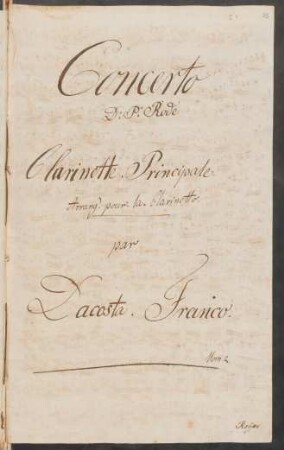 Concerto
D: P: Rode
Clarinette Principale
Arranj. pour la Clarinette
par
Dacosta. Franco.